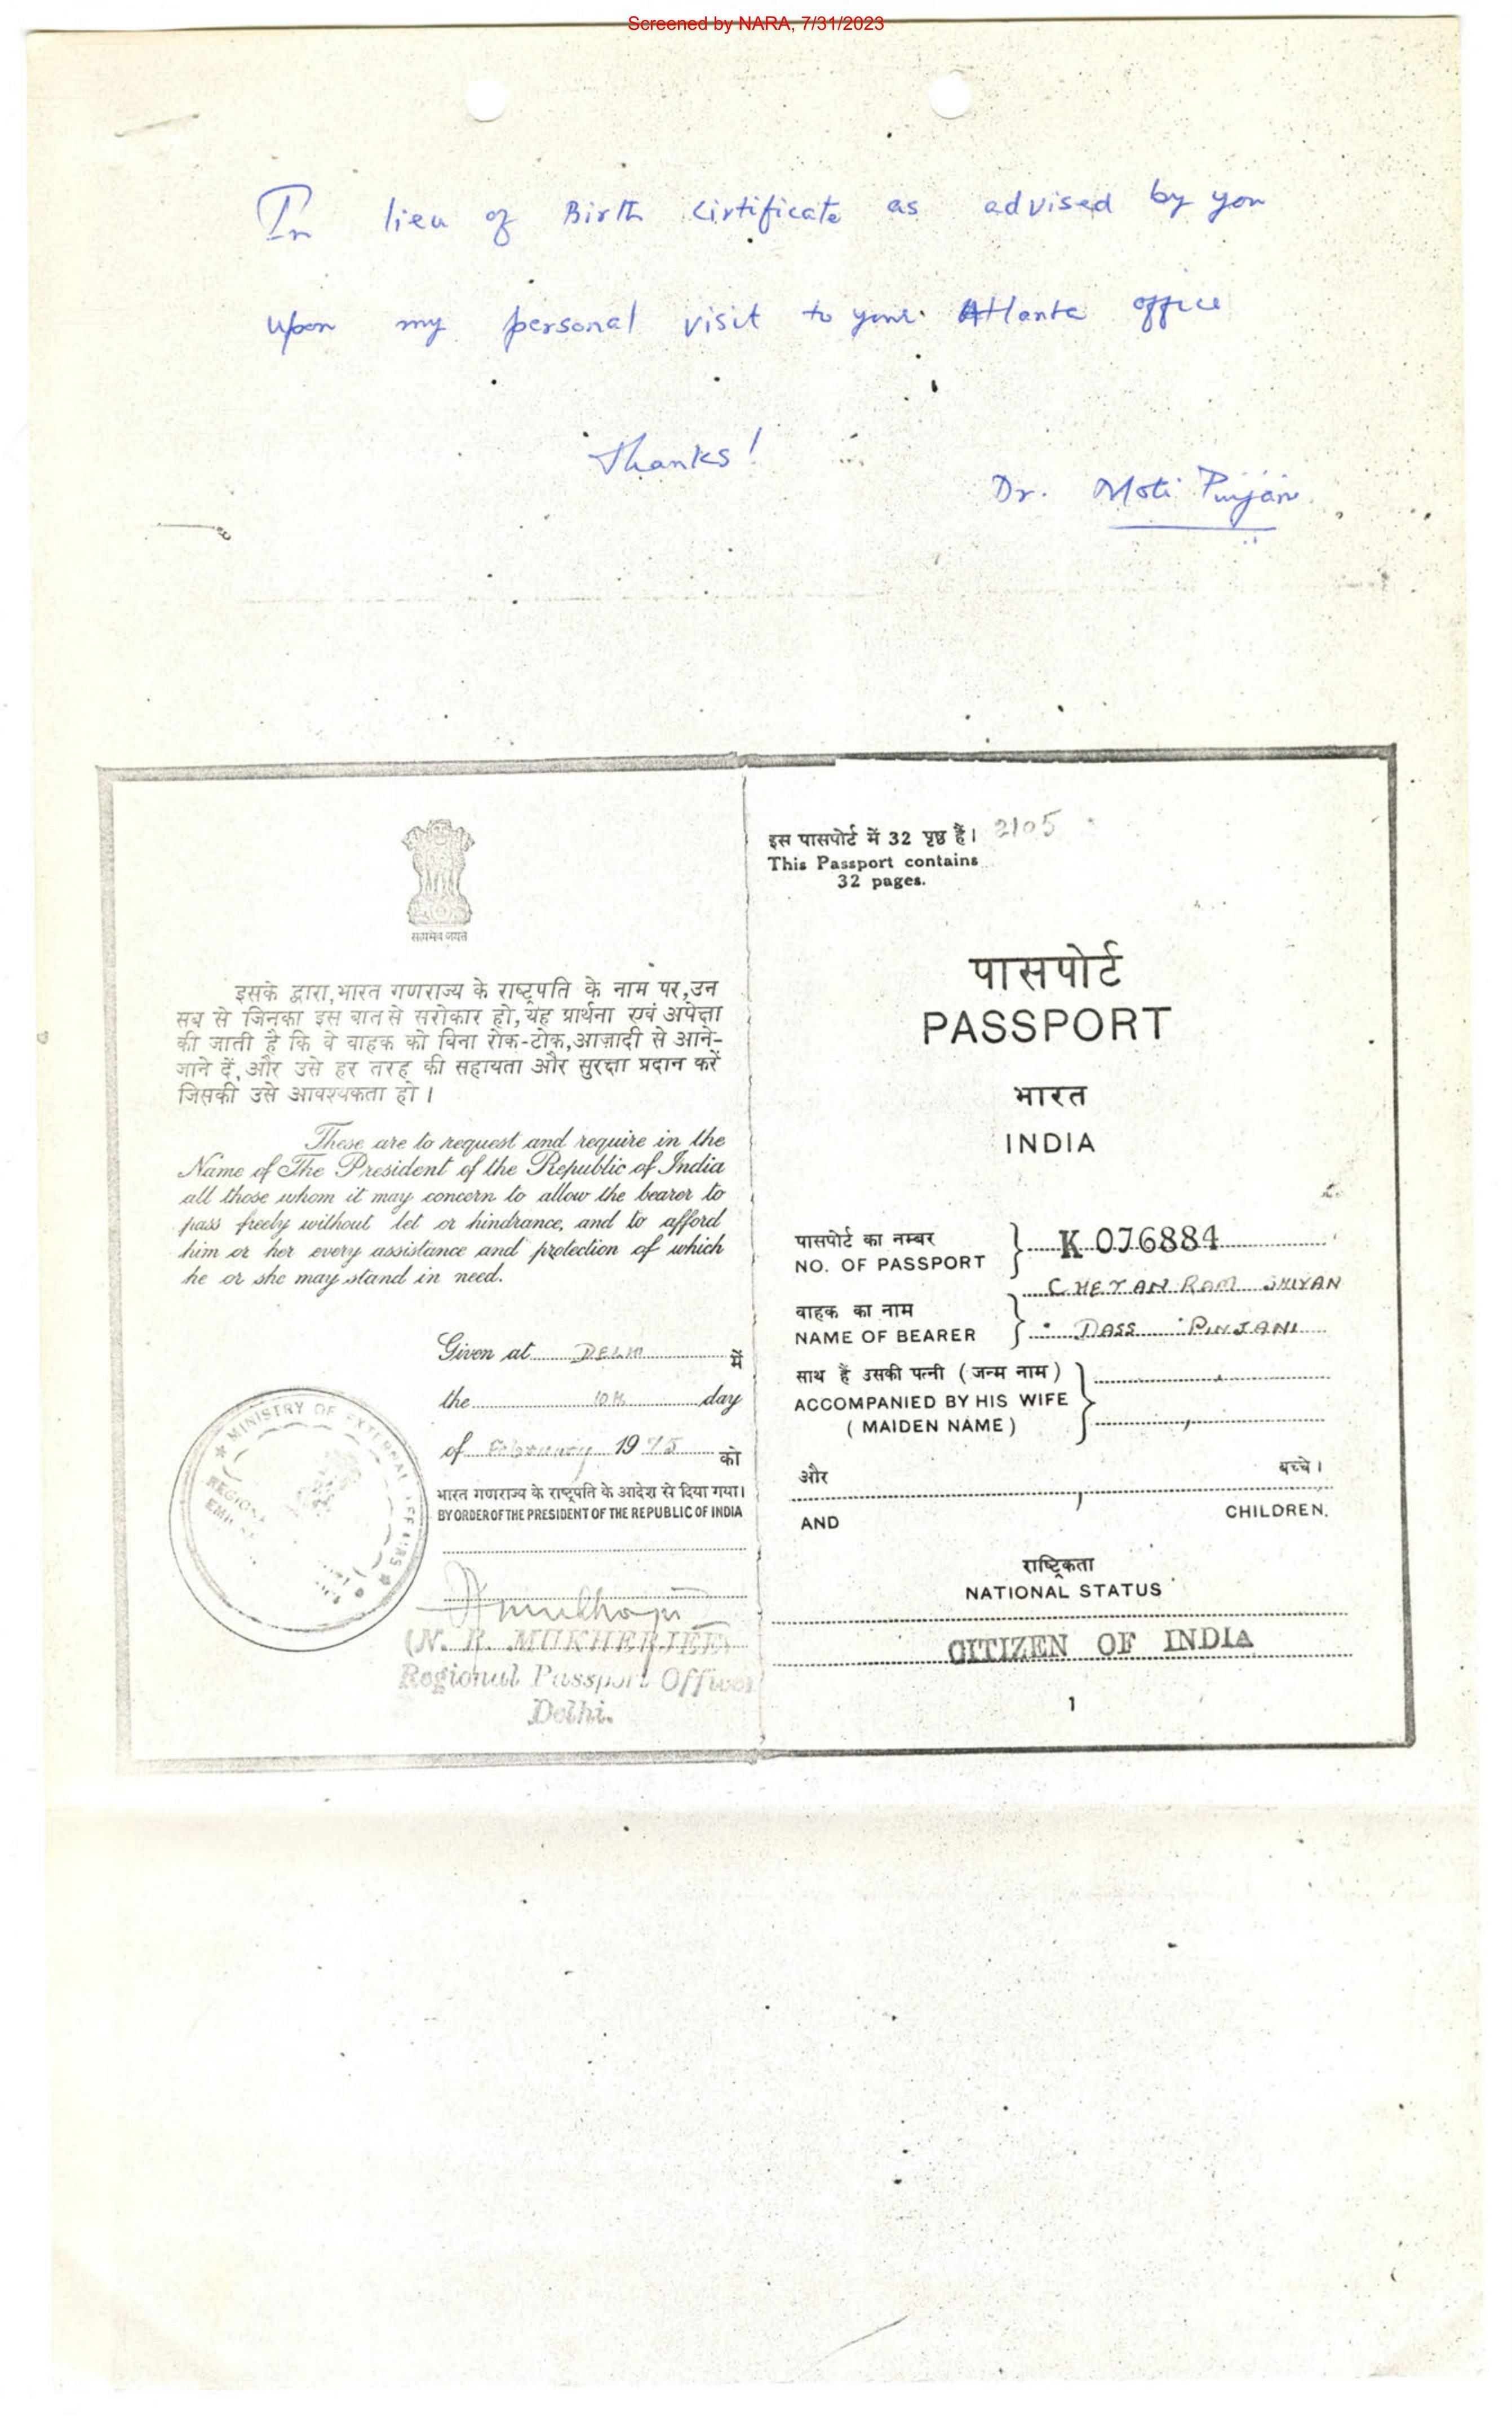 Screened by NARA, 7/31/2023
In lieu of Birth Cirtificate as advised by you
upon my personal visit to your Atlanta office
Thanks!
Dr. Moti Pinjani
सत्यमेव जयते
इसके द्वारा, भारत गणराज्य के राष्ट्रपति के नाम पर, उन
सब से जिनका इस बात से सरोकार हो, यह प्रार्थना एवं अपेक्षा
की जाती है कि वे वाहक को बिना रोक-टोक, आज़ादी से आने-
जाने दें, और उसे हर तरह की सहायता और सुरक्षा प्रदान करें
जिसकी उसे आवश्यकता हो।
These are to request and require in the
Name of The President of the Republic of India
all those whom it may concern to allow the bearer to
pass freely without let or hindrance, and to afford
him or her every assistance and protection of which
he or she may stand in need.
Given at DELHI में
the 10th day
of February 1975 को
भारत गणराज्य के राष्ट्रपति के आदेश से दिया गया।
BY ORDER OF THE PRESIDENT OF THE REPUBLIC OF INDIA
MINISTRY OF EXTERNAL AFFAIRS
(N. R. MUKHERJEE)
Regional Passport Officer
Delhi.
इस पासपोर्ट में 32 पृष्ठ हैं। 2105
This Passport contains
32 pages.
पासपोर्ट
PASSPORT
भारत
INDIA
पासपोर्ट का नम्बर
NO. OF PASSPORT K 076884
CHETAN RAM SHIYAN
वाहक का नाम
NAME OF BEARER DASS PINJANI
साथ हैं उसकी पत्नी (जन्म नाम)
ACCOMPANIED BY HIS WIFE
(MAIDEN NAME)
और बच्चे।
AND CHILDREN.
राष्ट्रिकता
NATIONAL STATUS
CITIZEN OF INDIA
1